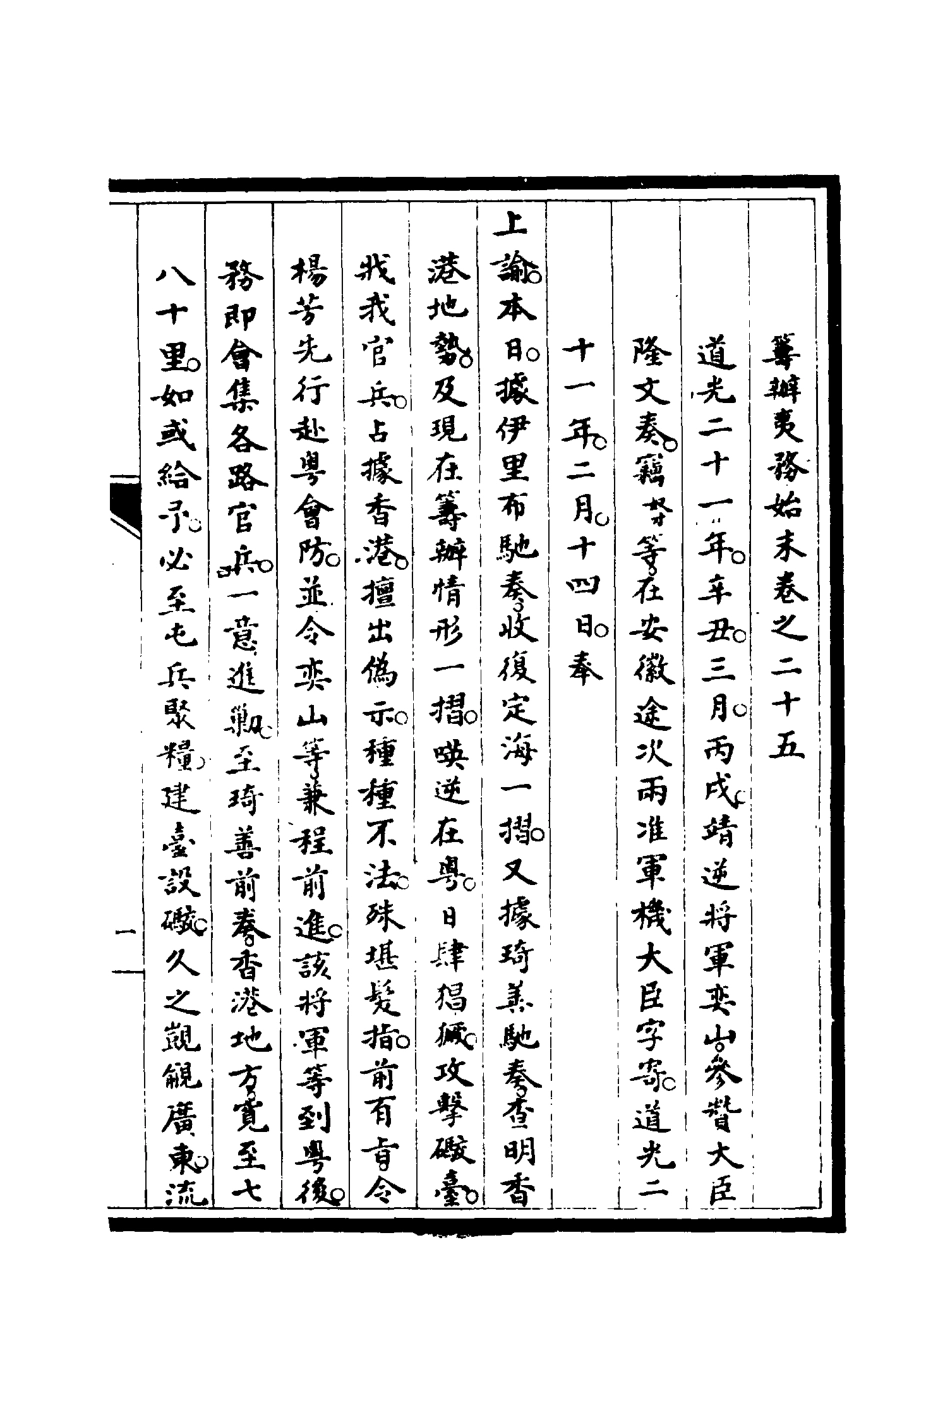 籌辦夷務始末卷之二十五
道光二十一年。辛丑。三月。丙戌。靖逆將軍奕山。參贊大臣
隆文奏。竊奴才等。在安徽途次兩准軍機大臣字寄。道光二
十一年。二月。十四日。奉
上諭。本日。據伊里布馳奏。收復定海一摺。又據琦善馳奏。查明香
港地勢。及現在籌辦情形一摺。㗸逆在粵。日肆猖獗。攻擊礮臺。
戕我官兵。占據香港。擅出偽示。種種不法。殊堪髮指。前有旨。令
楊芳先行赴粵會防。並令奕山等。兼程前進。該將軍等到粵後。
務即會集各路官兵。一意進勦。至琦善前奏。香港地方。寬至七
八十里。如或給予。必至屯兵聚糧。建臺設礮。久之覬覦廣東。流
一